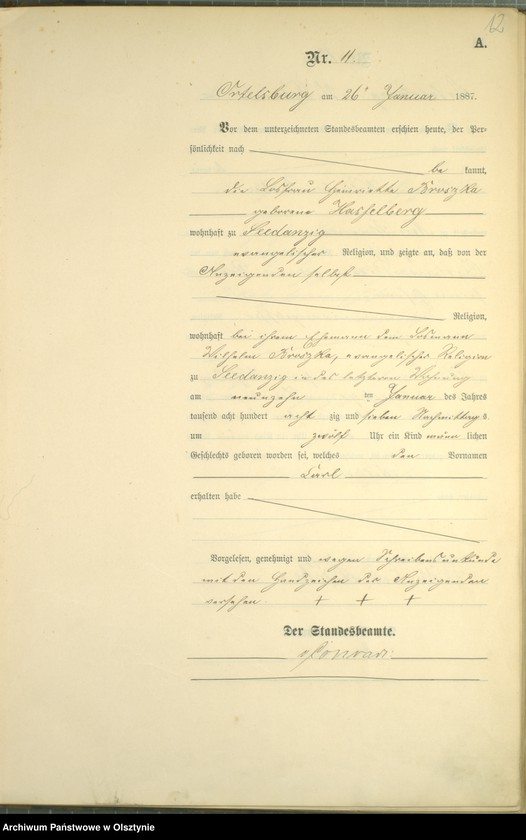 12
A.
Nr. 11
Ortelsburg am 26ᵗ Januar 1887.
Vor dem unterzeichneten Standesbeamten erschien heute, der Per-
sönlichkeit nach
be kannt,
die Losfrau Henriette Broszka
geborene Hasselberg
wohnhaft zu Seedanzig
evangelischer Religion, und zeigte an, daß von der
Anzeigenden selbst
Religion,
wohnhaft bei ihrem Ehemann dem Losmann
Wilhelm Broszka, evangelischer Religion
zu Seedanzig in des letzteren Wohnung
am neunzehn ten Januar des Jahres
tausend acht hundert acht zig und sieben Nachmittags
um zwölf Uhr ein Kind männ lichen
Geschlechts geboren worden sei, welches den Vornamen
Carl
erhalten habe
Vorgelesen, genehmigt und wegen Schreibensunkunde
mit den Handzeichen der Anzeigenden
versehen + + +
Der Standesbeamte.
Archiwum Państwowe w Olsztynie